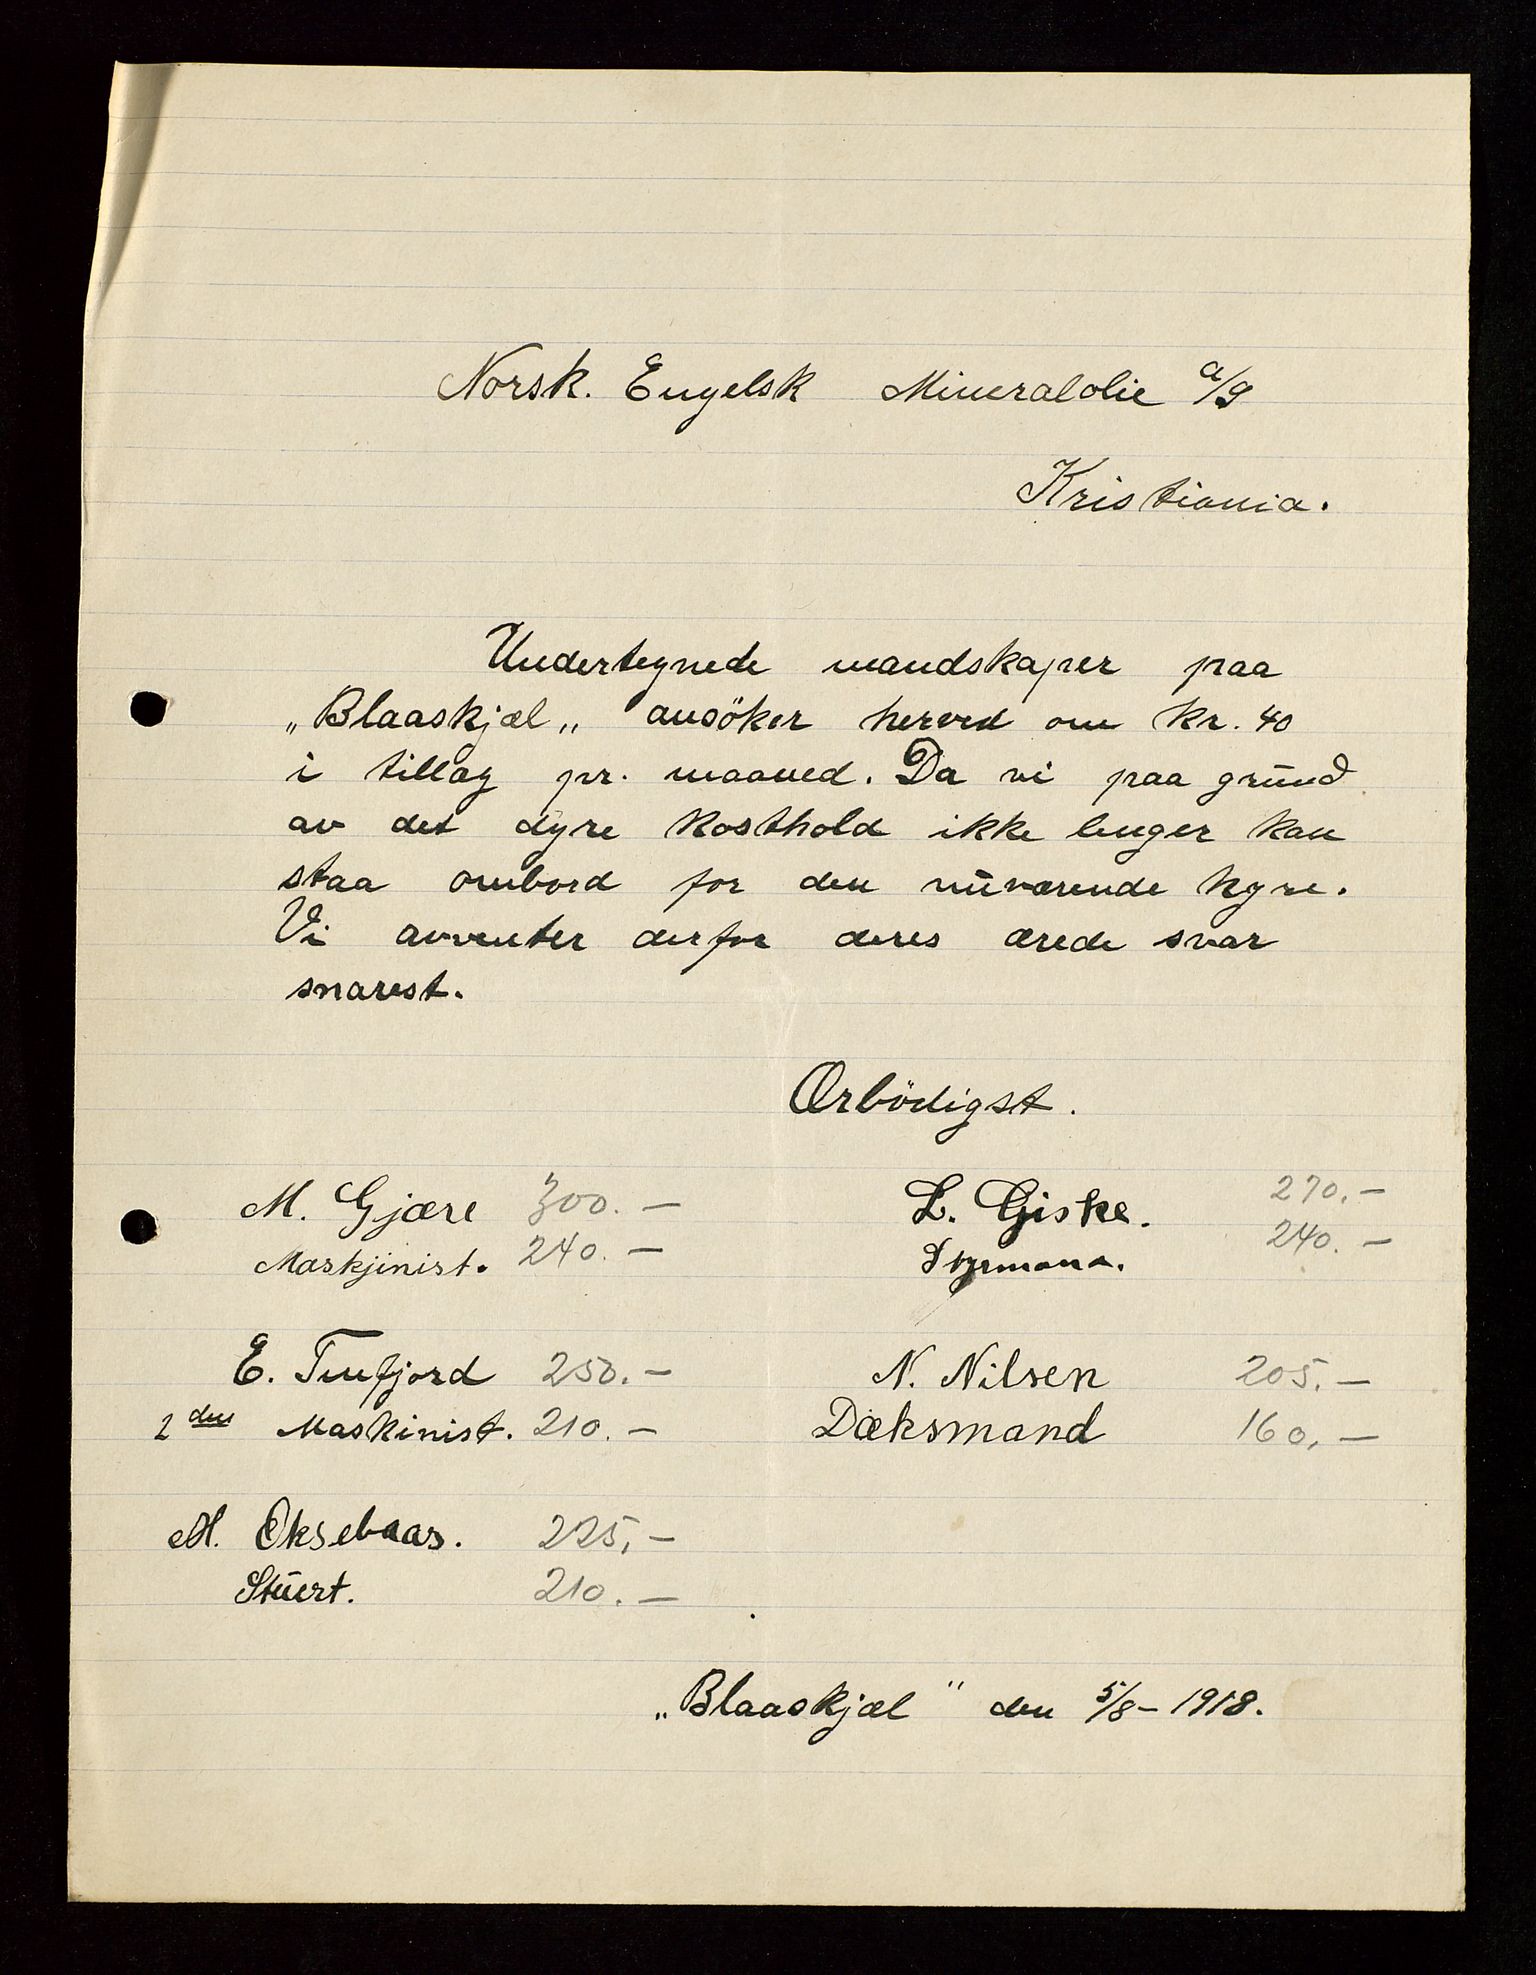 Norsk. Engelsk Mineralolie a/s
Kristiania.
Undertegnede mandskaper paa
„Blaaskjæl„ ansöker herved om kr. 40
i tillæg pr. maaned. Da vi paa grund
av det dyre kosthold ikke lenger kan
staa ombord for den nuværende hyre.
Vi avventer derfor deres ærede svar
snarest.
Ærbödigst.
M. Gjære 300.—
Maskjinist. 240.—
L. Giske. 270.—
Styrmann. 240.—
E. Tuufjord 250.—
2den Maskinist. 210.—
N. Nilsen 205.—
Dæksmand 160,—
M. Oksebaas. 225,—
Stuert. 210.—
„Blaaskjæl" den 5/8–1918.